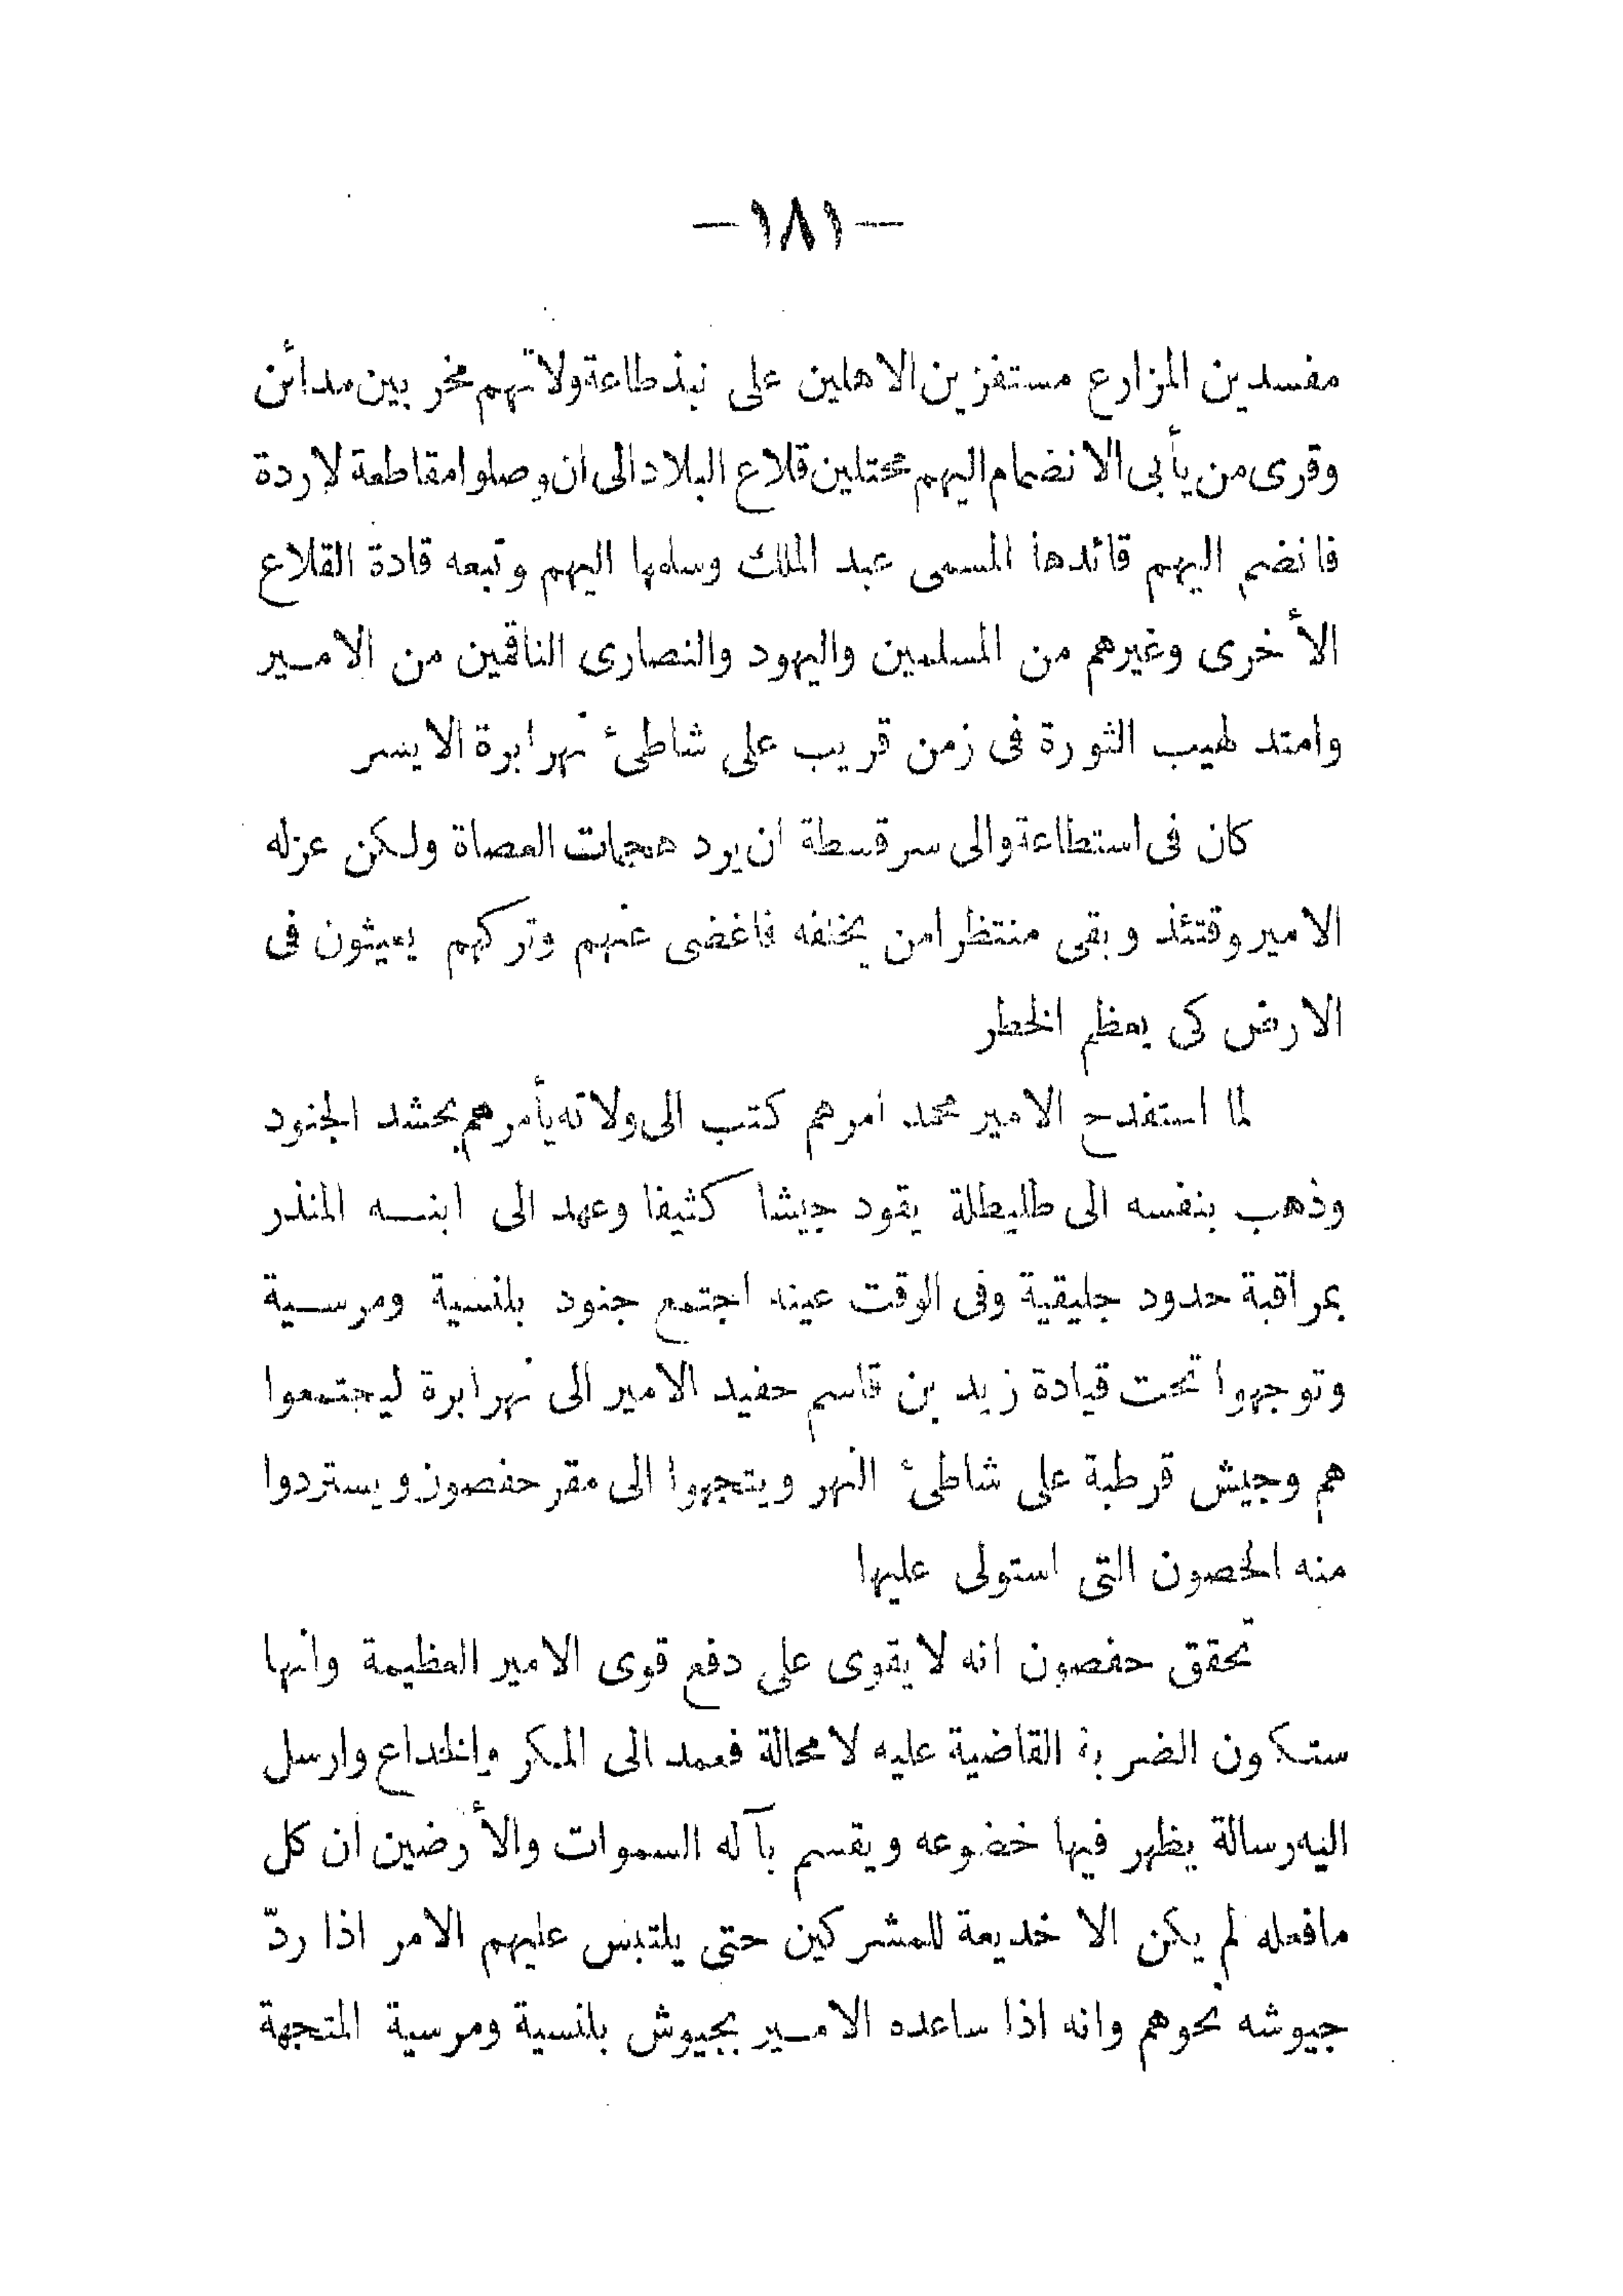 — ١٨١ —
مفسدين المزارع مستفزين الاهلين على نبذ طاعة ولاتهم مخر بين مدائن
وقرى من يأبى الانضمام اليهم محتلين قلاع البلاد الى ان وصلوا مقاطعة لاردة
فانضم اليهم قائدها المسمى عبد الملك وسلمها اليهم وتبعه قادة القلاع
الأخرى وغيرهم من المسلمين واليهود والنصارى الناقمين من الامير
وامتد لهيب الثورة فى زمن قريب على شاطئ نهر ابرة الايسر
كان فى استطاعة والى سرقسطة ان يرد هجمات العصاة ولكن عزله
الامير وقتئذ وبقى منتظرا من يخلفه فاغضى عنهم وتركهم يعيثون فى
الارض كى يعظم الخطر
لما استفدح الامير محمد امرهم كتب الى ولاته يأمرهم بحشد الجنود
وذهب بنفسه الى طليطلة يقود جيشا كثيفا وعهد الى ابنه المنذر
بمراقبة حدود جليقية وفى الوقت عينه اجتمع جنود بلنسية ومرسية
وتوجهوا تحت قيادة زيد بن قاسم حفيد الامير الى نهر ابرة ليجتمعوا
هم وجيش قرطبة على شاطئ النهر ويتجهوا الى مقر حفصون ويستردوا
منه الحصون التى استولى عليها
تحقق حفصون انه لا يقوى على دفع قوى الامير العظيمة وانها
ستكون الضربة القاضية عليه لا محالة فعمد الى المكر والخداع وارسل
اليه رسالة يظهر فيها خضوعه ويقسم بآله السموات والأرضين ان كل
مافعله لم يكن الا خديعة للمشركين حتى يلتبس عليهم الامر اذا ردّ
جيوشه نحوهم وانه اذا ساعده الامير بجيوش بلنسية ومرسية المتجهة